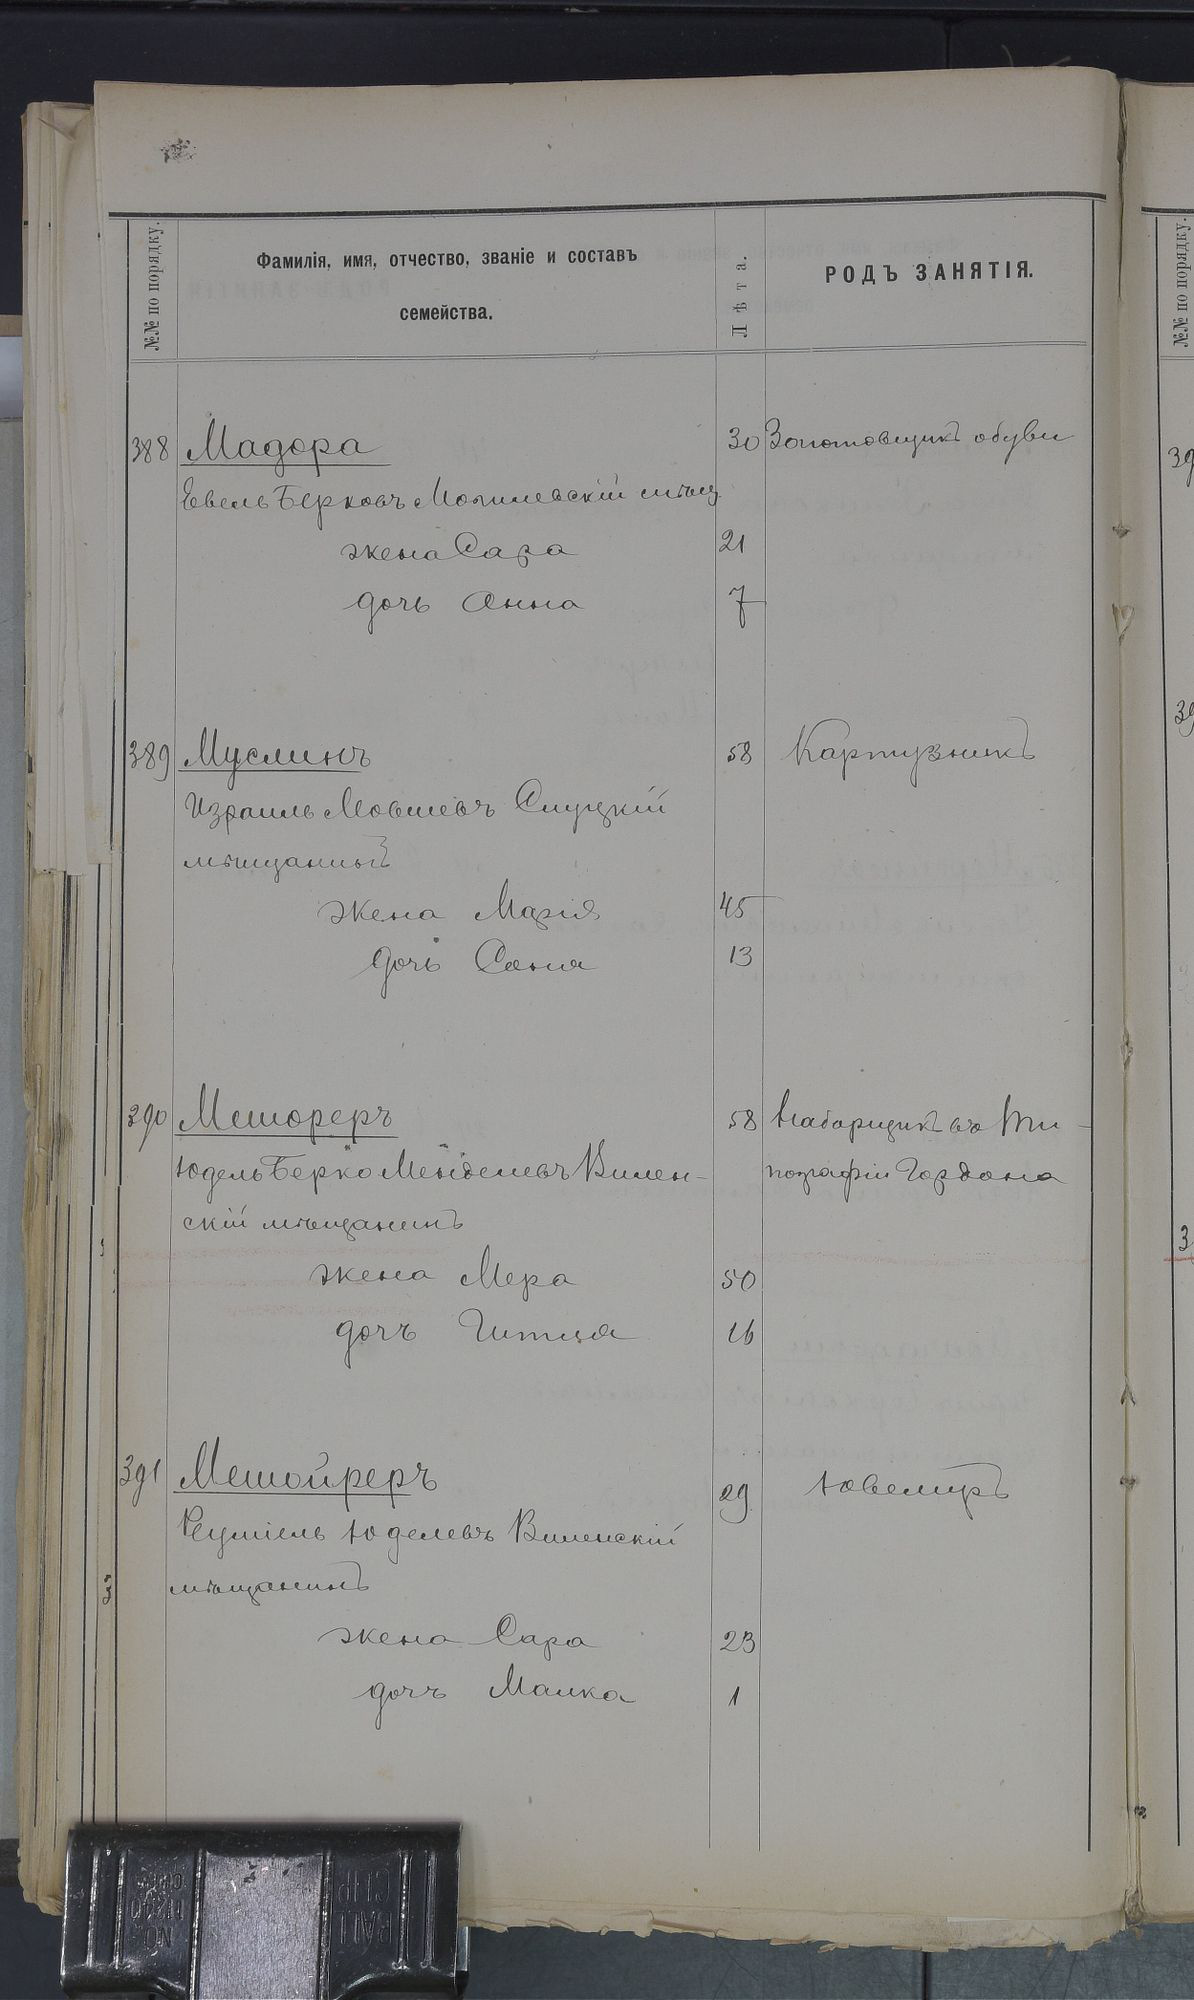 №№ по порядку.
Фамилія, имя, отчество, званіе и составъ
семейства.
Лѣта.
РОДЪ ЗАНЯТІЯ.
№№ по порядку.
388 Мадора 30 Заготовщикъ обуви
Евель Берковъ Могилевскій мѣщ
жена Сара 21
дочь Анна 7
389 Муслинъ 58 Картузникъ
Израиль Мовшевъ Слуцкій
мѣщанинъ
жена Марія 45
дочь Соня 13
390 Мешореръ 58 Наборщикъ въ Ти-
Юдель Берко Менделевъ Вилен- пографіи Гордона
скій мѣщанинъ
жена Мера 50
дочь Гитля 16
391 Мешойреръ 29 Ювелиръ
Юделевъ Виленскій
мѣщанинъ
жена Сара 23
дочь Малка 1